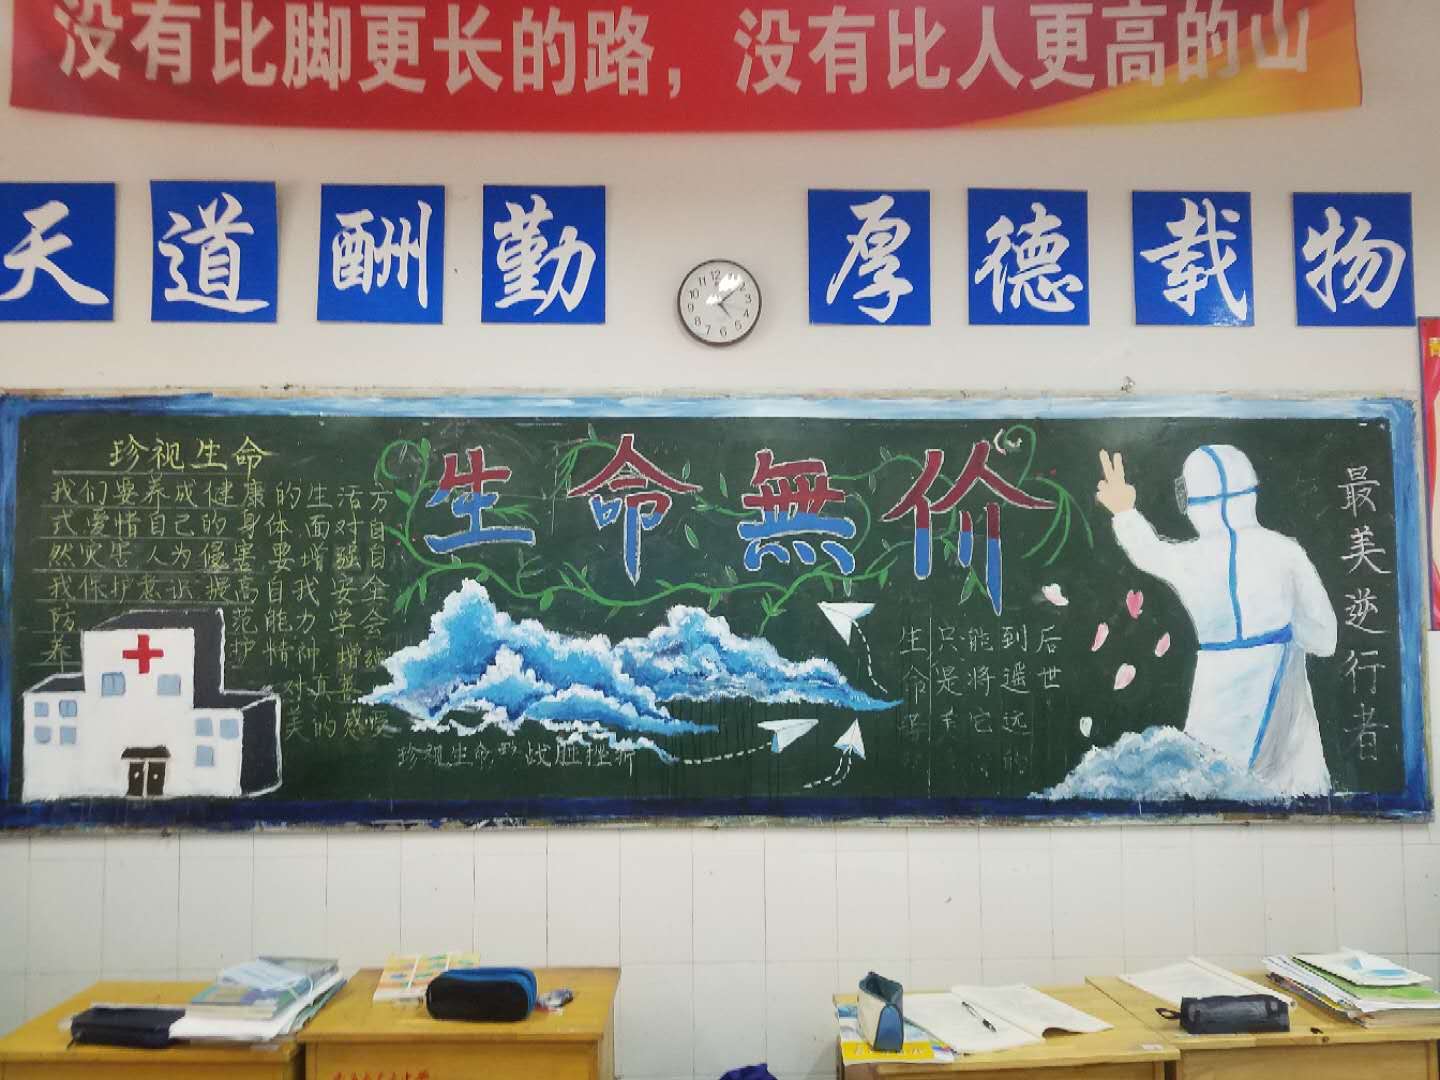 没有比脚更长的路，没有比人更高的山
天道酬勤 厚德载物
12
1
2
3
4
5
6
7
8
9
10
11
珍视生命
我们要养成健康的生活方
式爱惜自己的身体.面对自
然灾害人为侵害要增强自
我保护意识提高自我安全
防范能力学会
养护精神.增强
对真善
美的感
生命無价
珍视生命 战胜挫折
后世
到遥远的
能将它
只是
生命
最美逆行者